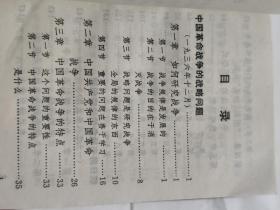 目录
中国革命战争的战略问题
（一九三六年十二月）
第一章 如何研究战争……1
第一节 战争规律是发展的……1
第二节 战争的目的在于消
灭战争……8
第三节 战略问题是研究战争
全局的规律的东西……10
第四节 重要的问题在善于学习……16
第二章 中国共产党和中国革命
战争……26
第三章 中国革命战争的特点……33
第一节 这个问题的重要性……33
第二节 中国革命战争的特点
是什么……35